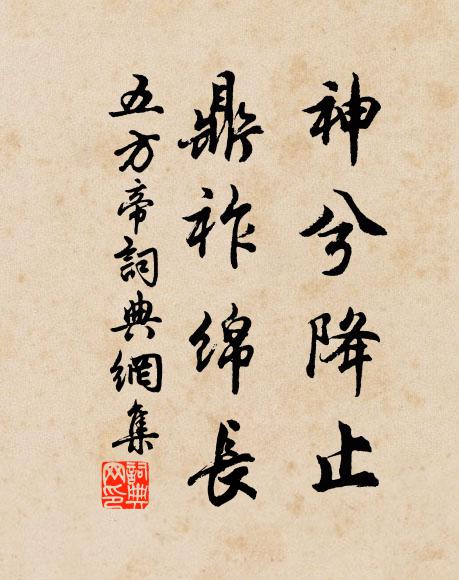 神兮降止
鼎祚綿長
五方帝詞典網集
詞典網印